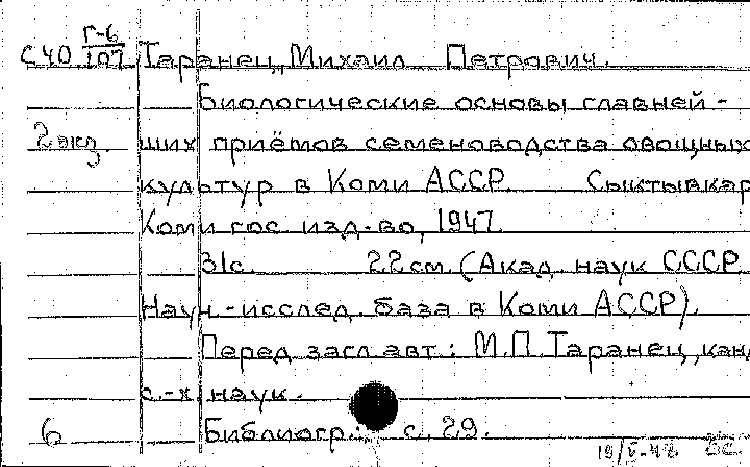 С40 Г-6/107 Таранец, Михаил Петрович.
Биологические основы главней-
2 экз. ших приёмов семеноводства овощных
культур в Коми АССР. Сыктывкар
Коми гос. изд-во, 1947
31с. 22 см. (Акад. наук СССР.
Научн.-исслед. база в Коми АССР).
Перед загл. авт.: М.П. Таранец, канд
с.-х. наук.
6 Библиогр.: с. 29.